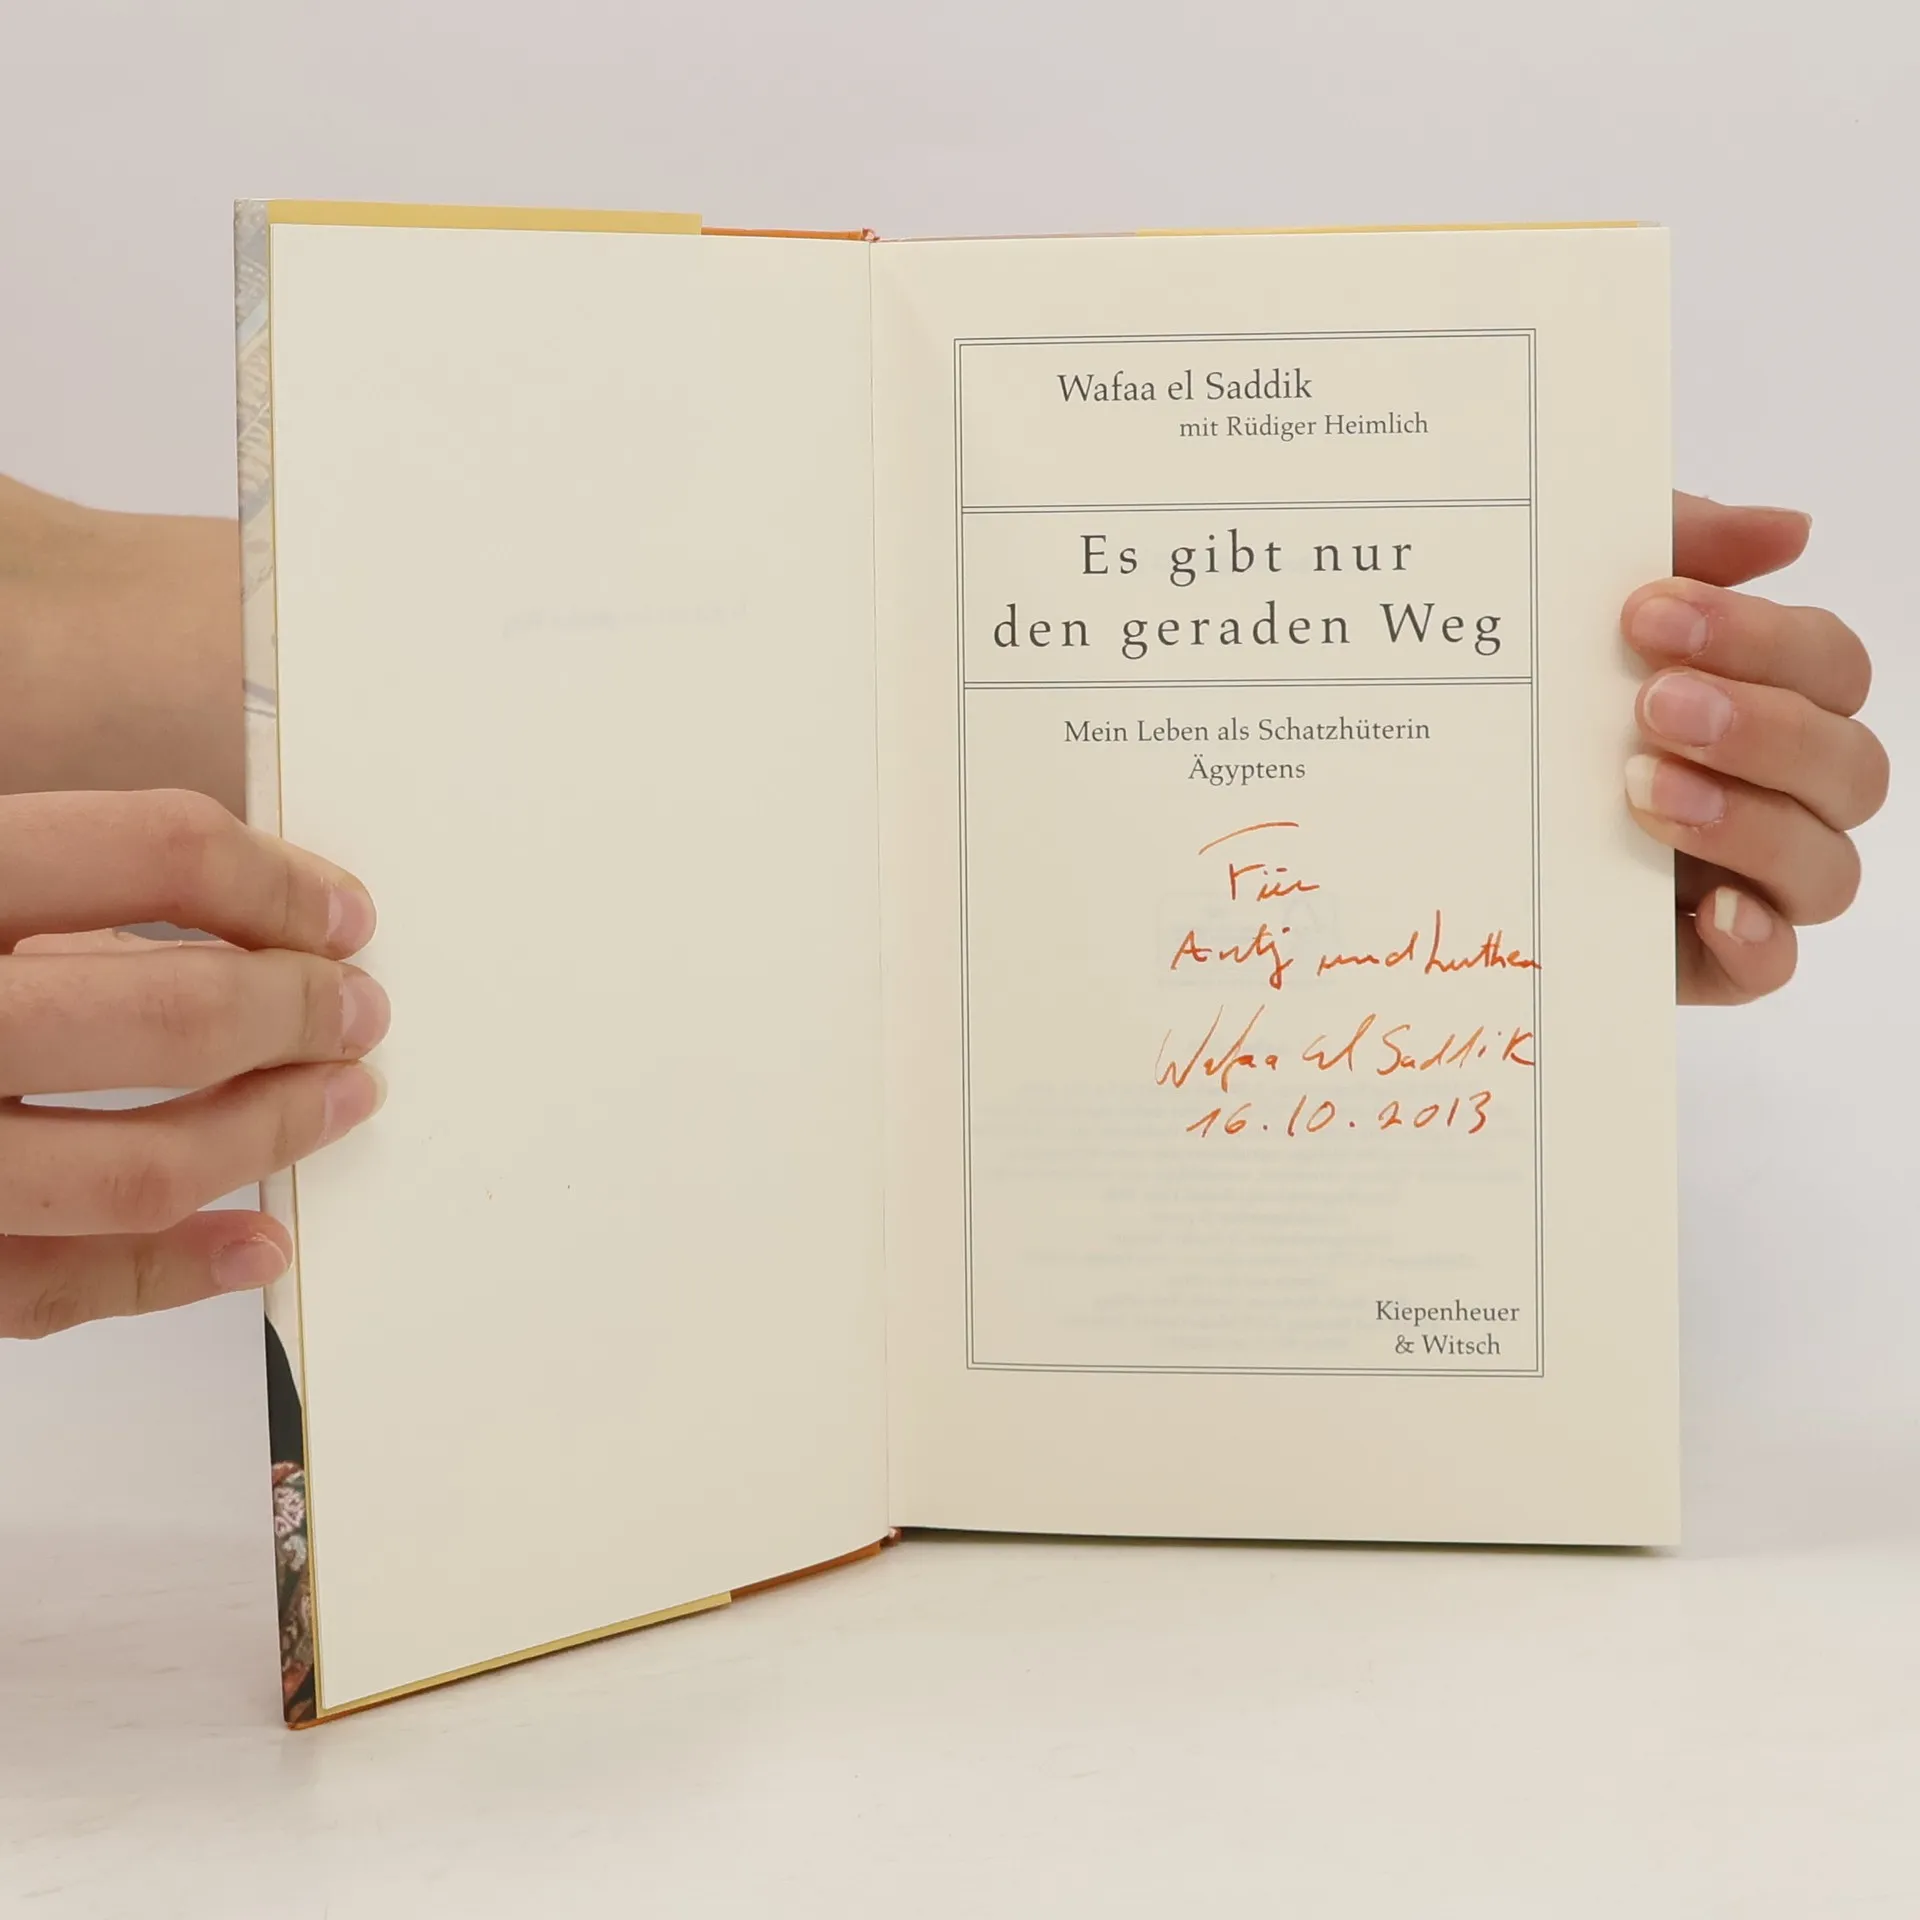 Wafaa el Saddik
mit Rüdiger Heimlich
Es gibt nur
den geraden Weg
Mein Leben als Schatzhüterin
Ägyptens
Für
und
Wafaa el Saddik
16.10.2013
Kiepenheuer
& Witsch